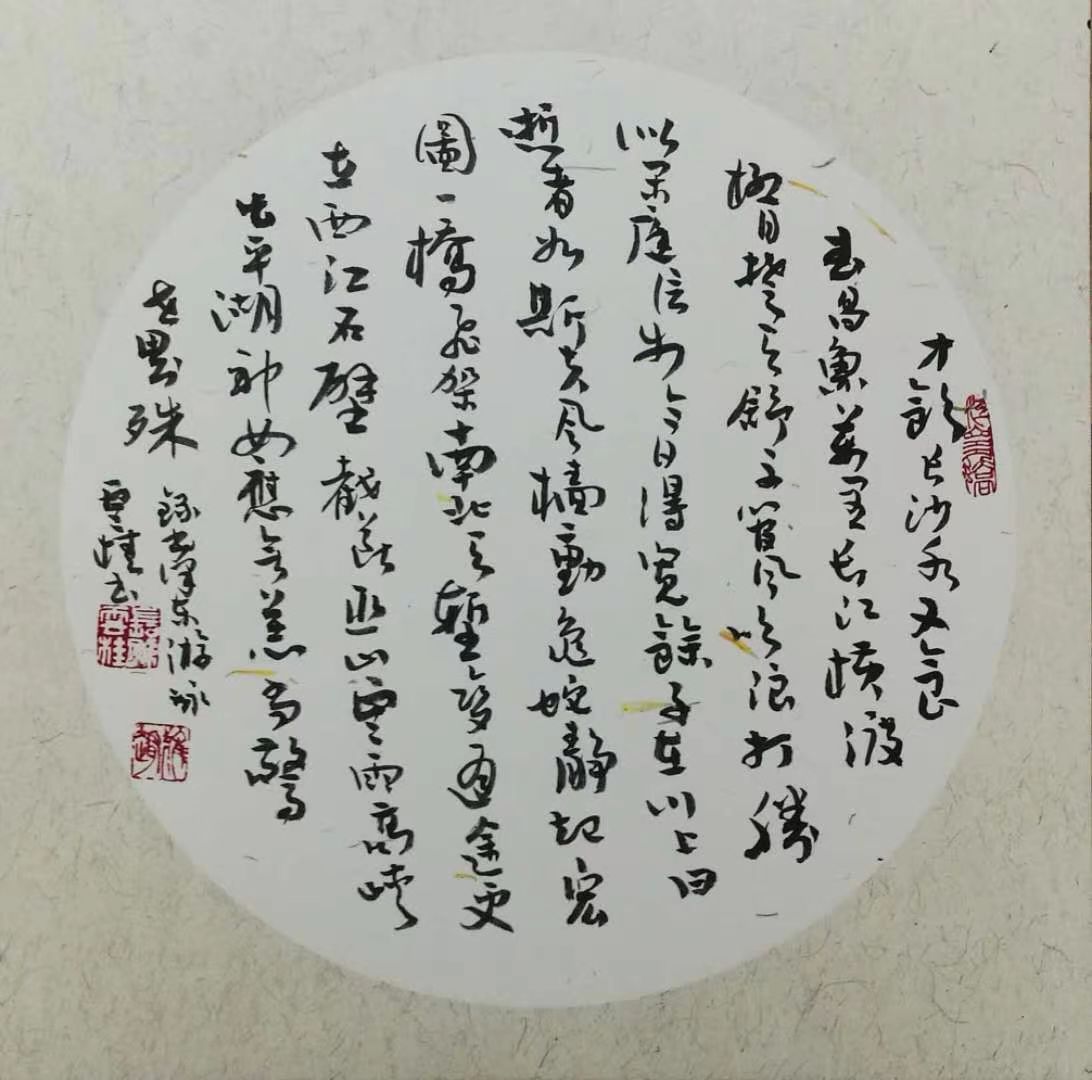 才飲长沙水又食
武昌魚萬里长江横渡
極目楚天舒不管風吹浪打勝
似閒庭信步今日得寬餘子在川上曰
逝者如斯夫風檣動龜蛇靜起宏
圖一橋飛架南北天塹變通途更
立西江石壁截斷巫山雲雨高峽
出平湖神女應無恙當驚
世界殊
錄毛澤東游泳
书